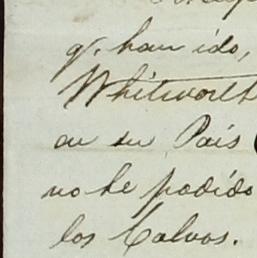 q.e han ido,
Whitworth
en su País
no he podido
los Calvos.